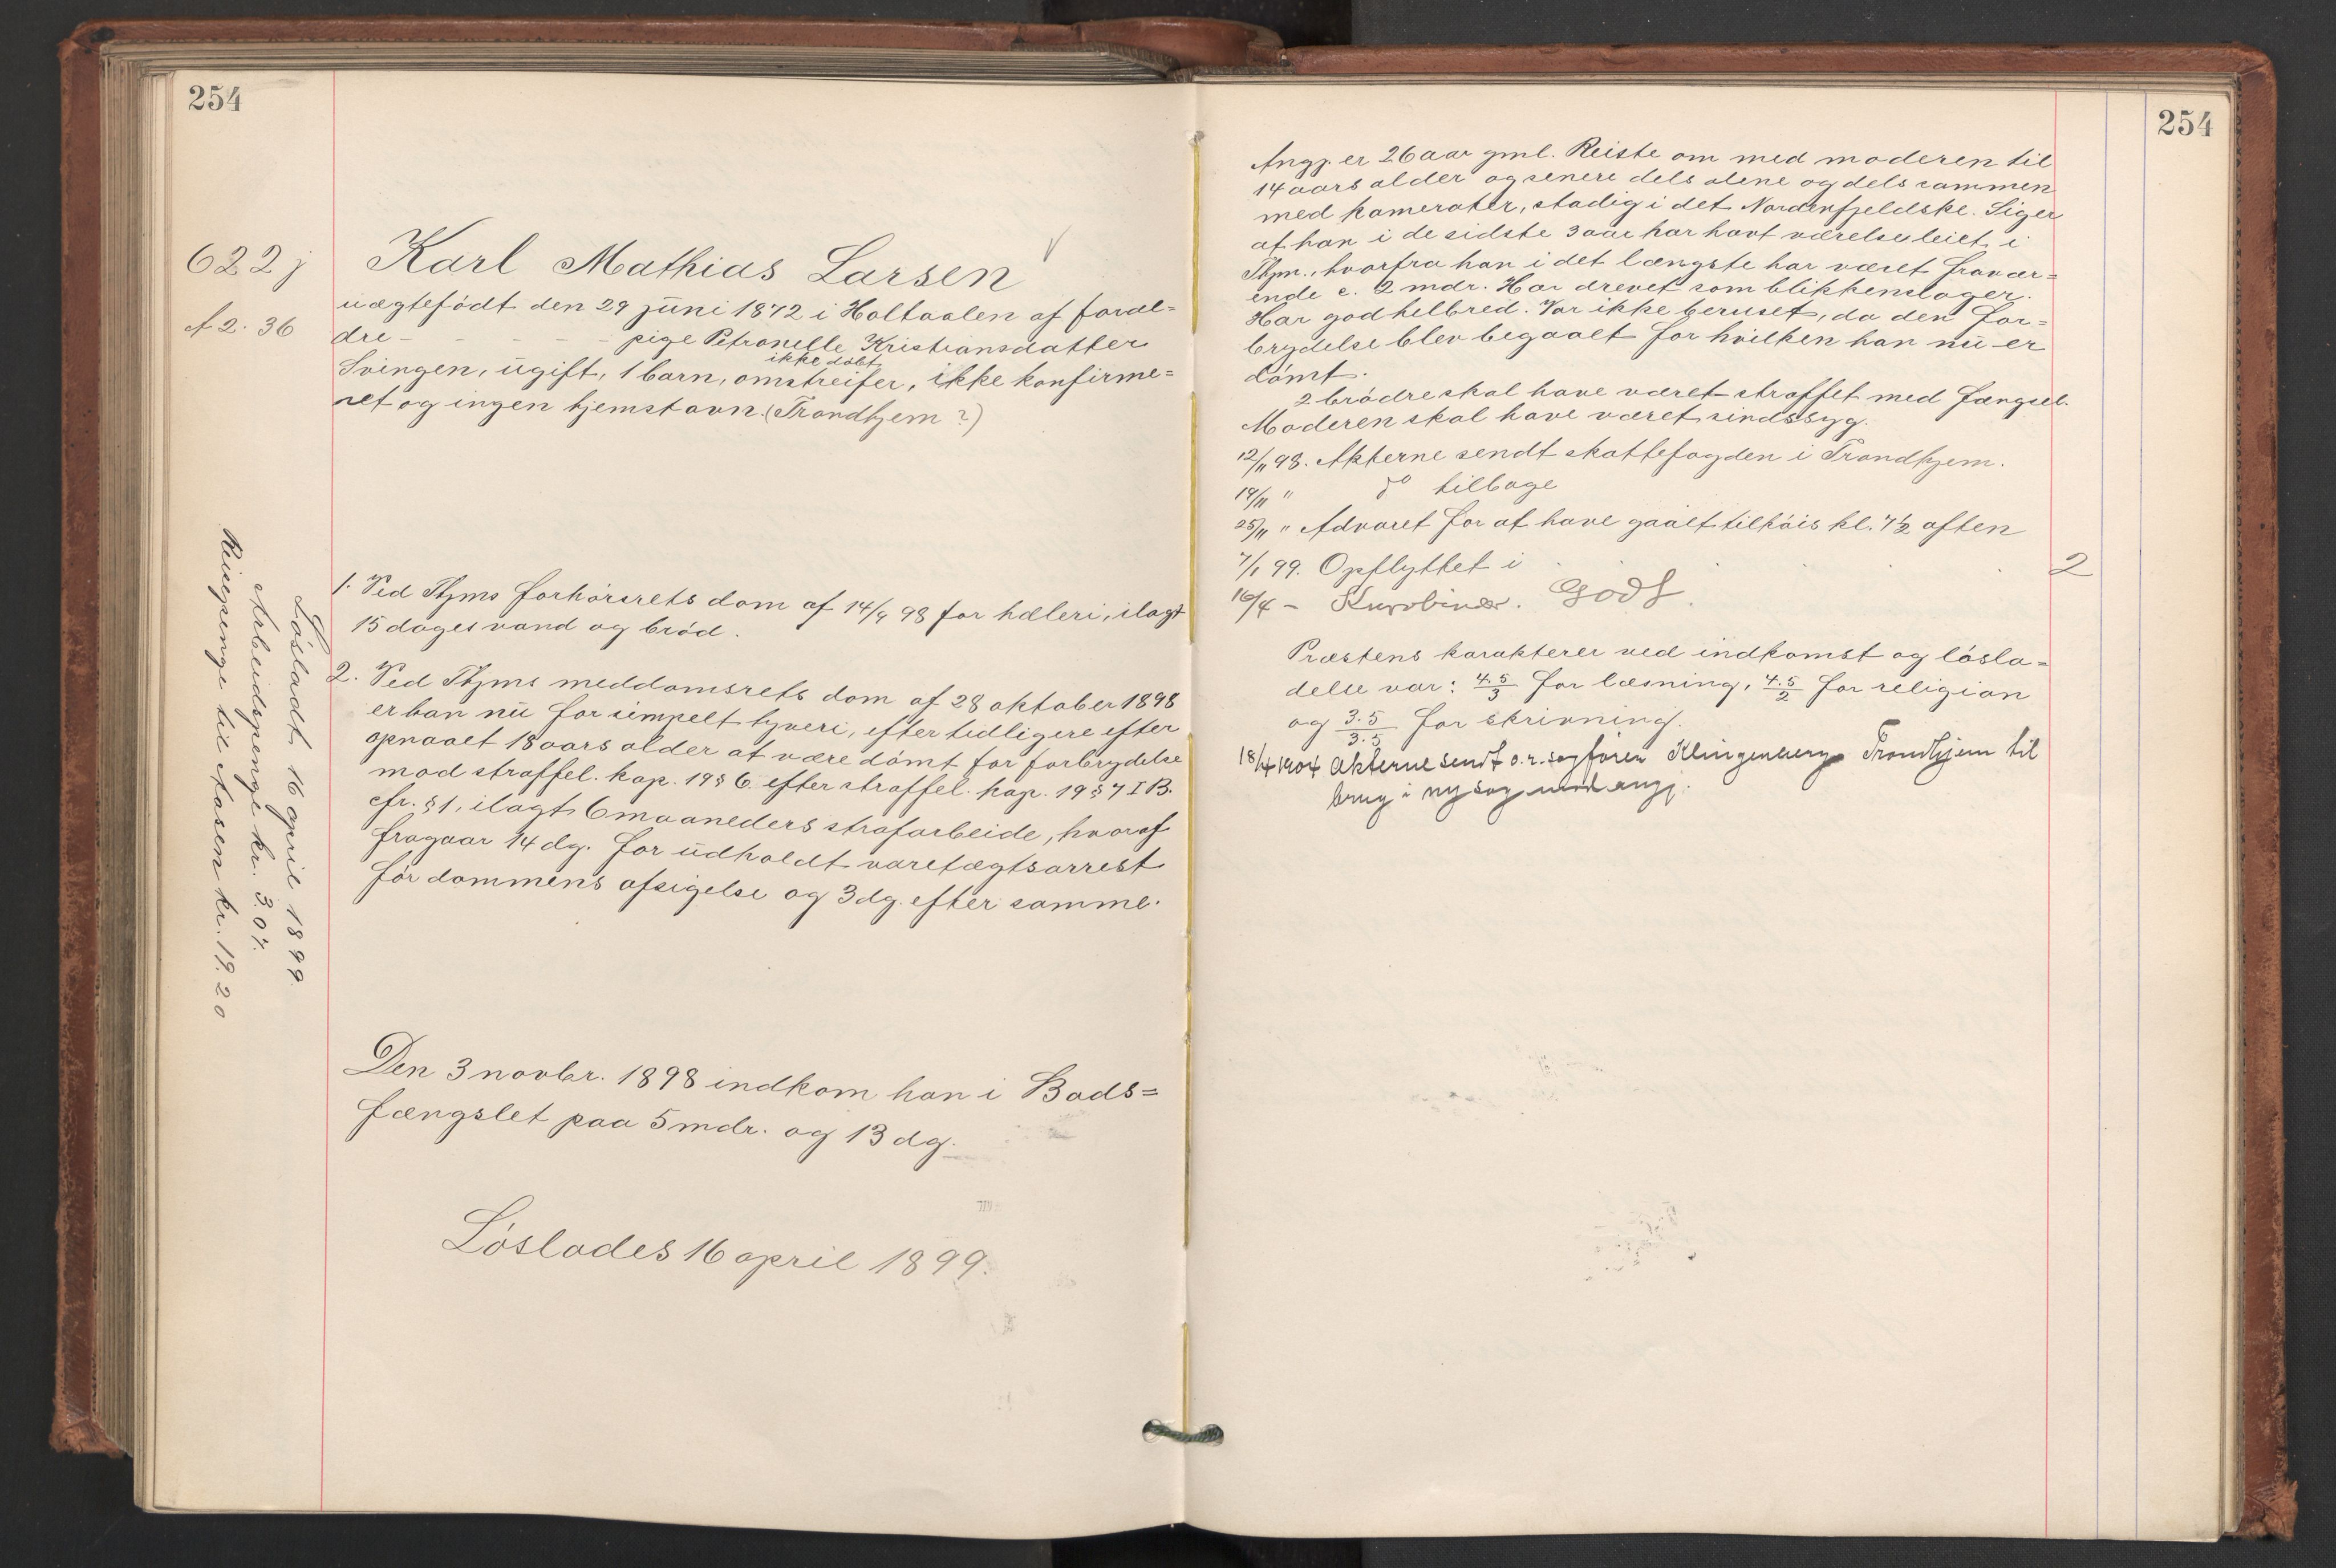 254
622 j
A 2. 36
Karl Mathias Larsen
uægtefødt den 29 juni 1872 i Holtaalen af foræl-
dre - - - - - pige Petronelle Kristiansdatter
ikke døbt
Svingen, ugift, 1 barn, omstreifer, ikke konfirme-
ret og ingen hjemstavn. (Trondhjem?)
1. Ved Thjms forhørsrets dom af 14/9 98 for hæleri, ilagt
15 dages vand og brød.
2. Ved Thjms meddomsrets dom af 28 oktober 1898
er han nu for simpelt tyveri, efter tidligere efter
opnaaet 18 aars alder at være dømt for forbrydelse
mod straffel. kap. 19 § 6 efter straffel. kap. 19 § 7 I B.
cfr. § 1, ilagt 6 maaneders strafarbeide, hvoraf
fragaar 14 dg. for udholdt varetægtsarrest
før dommens afsigelse og 3 dg. efter samme.
Den 3 novbr. 1898 indkom han i Bods-
fængslet paa 5 mdr. og 13 dg.
Løslades 16 april 1899.
Løsladt 16 april 1899.
Arbeidspenge kr. 3.07.
Reisepenge til Aasen kr. 19.20
254
Angj. er 26 aar gml. Reiste om med moderen til
14 aars alder og senere dels alene og dels sammen
med kamerater, stadig i det Nordenfjeldske. Siger
at han i de sidste 3 aar har havt værelse leiet i
Thjm., hvorfra han i det længste har været fravær-
ende c. 2 mdr. Har drevet som blikkenslager.
Har god helbred. Var ikke beruset, da den for-
brydelse blev begaaet for hvilken han nu er
dømt.
2 brødre skal have været straffet med fængsel.
Moderen skal have været sindssyg.
12/11 98. Akterne sendt skattefogden i Trondhjem.
19/11 " do tilbage
25/11 " Advaret for at have gaaet tilkøis kl. 7 1/2 aften
7/1 99. Opflyttet i 2
16/4 - Godt.
Præstens karakterer ved indkomst og løsla-
delse var: 4.5/3 for læsning, 4.5/2 for religion
og 3.5/3.5 for skrivning.
18/4 1904 Akterne sendt o.r.sagfører Klingenberg Trondhjem til
brug i ny sag mod angj.